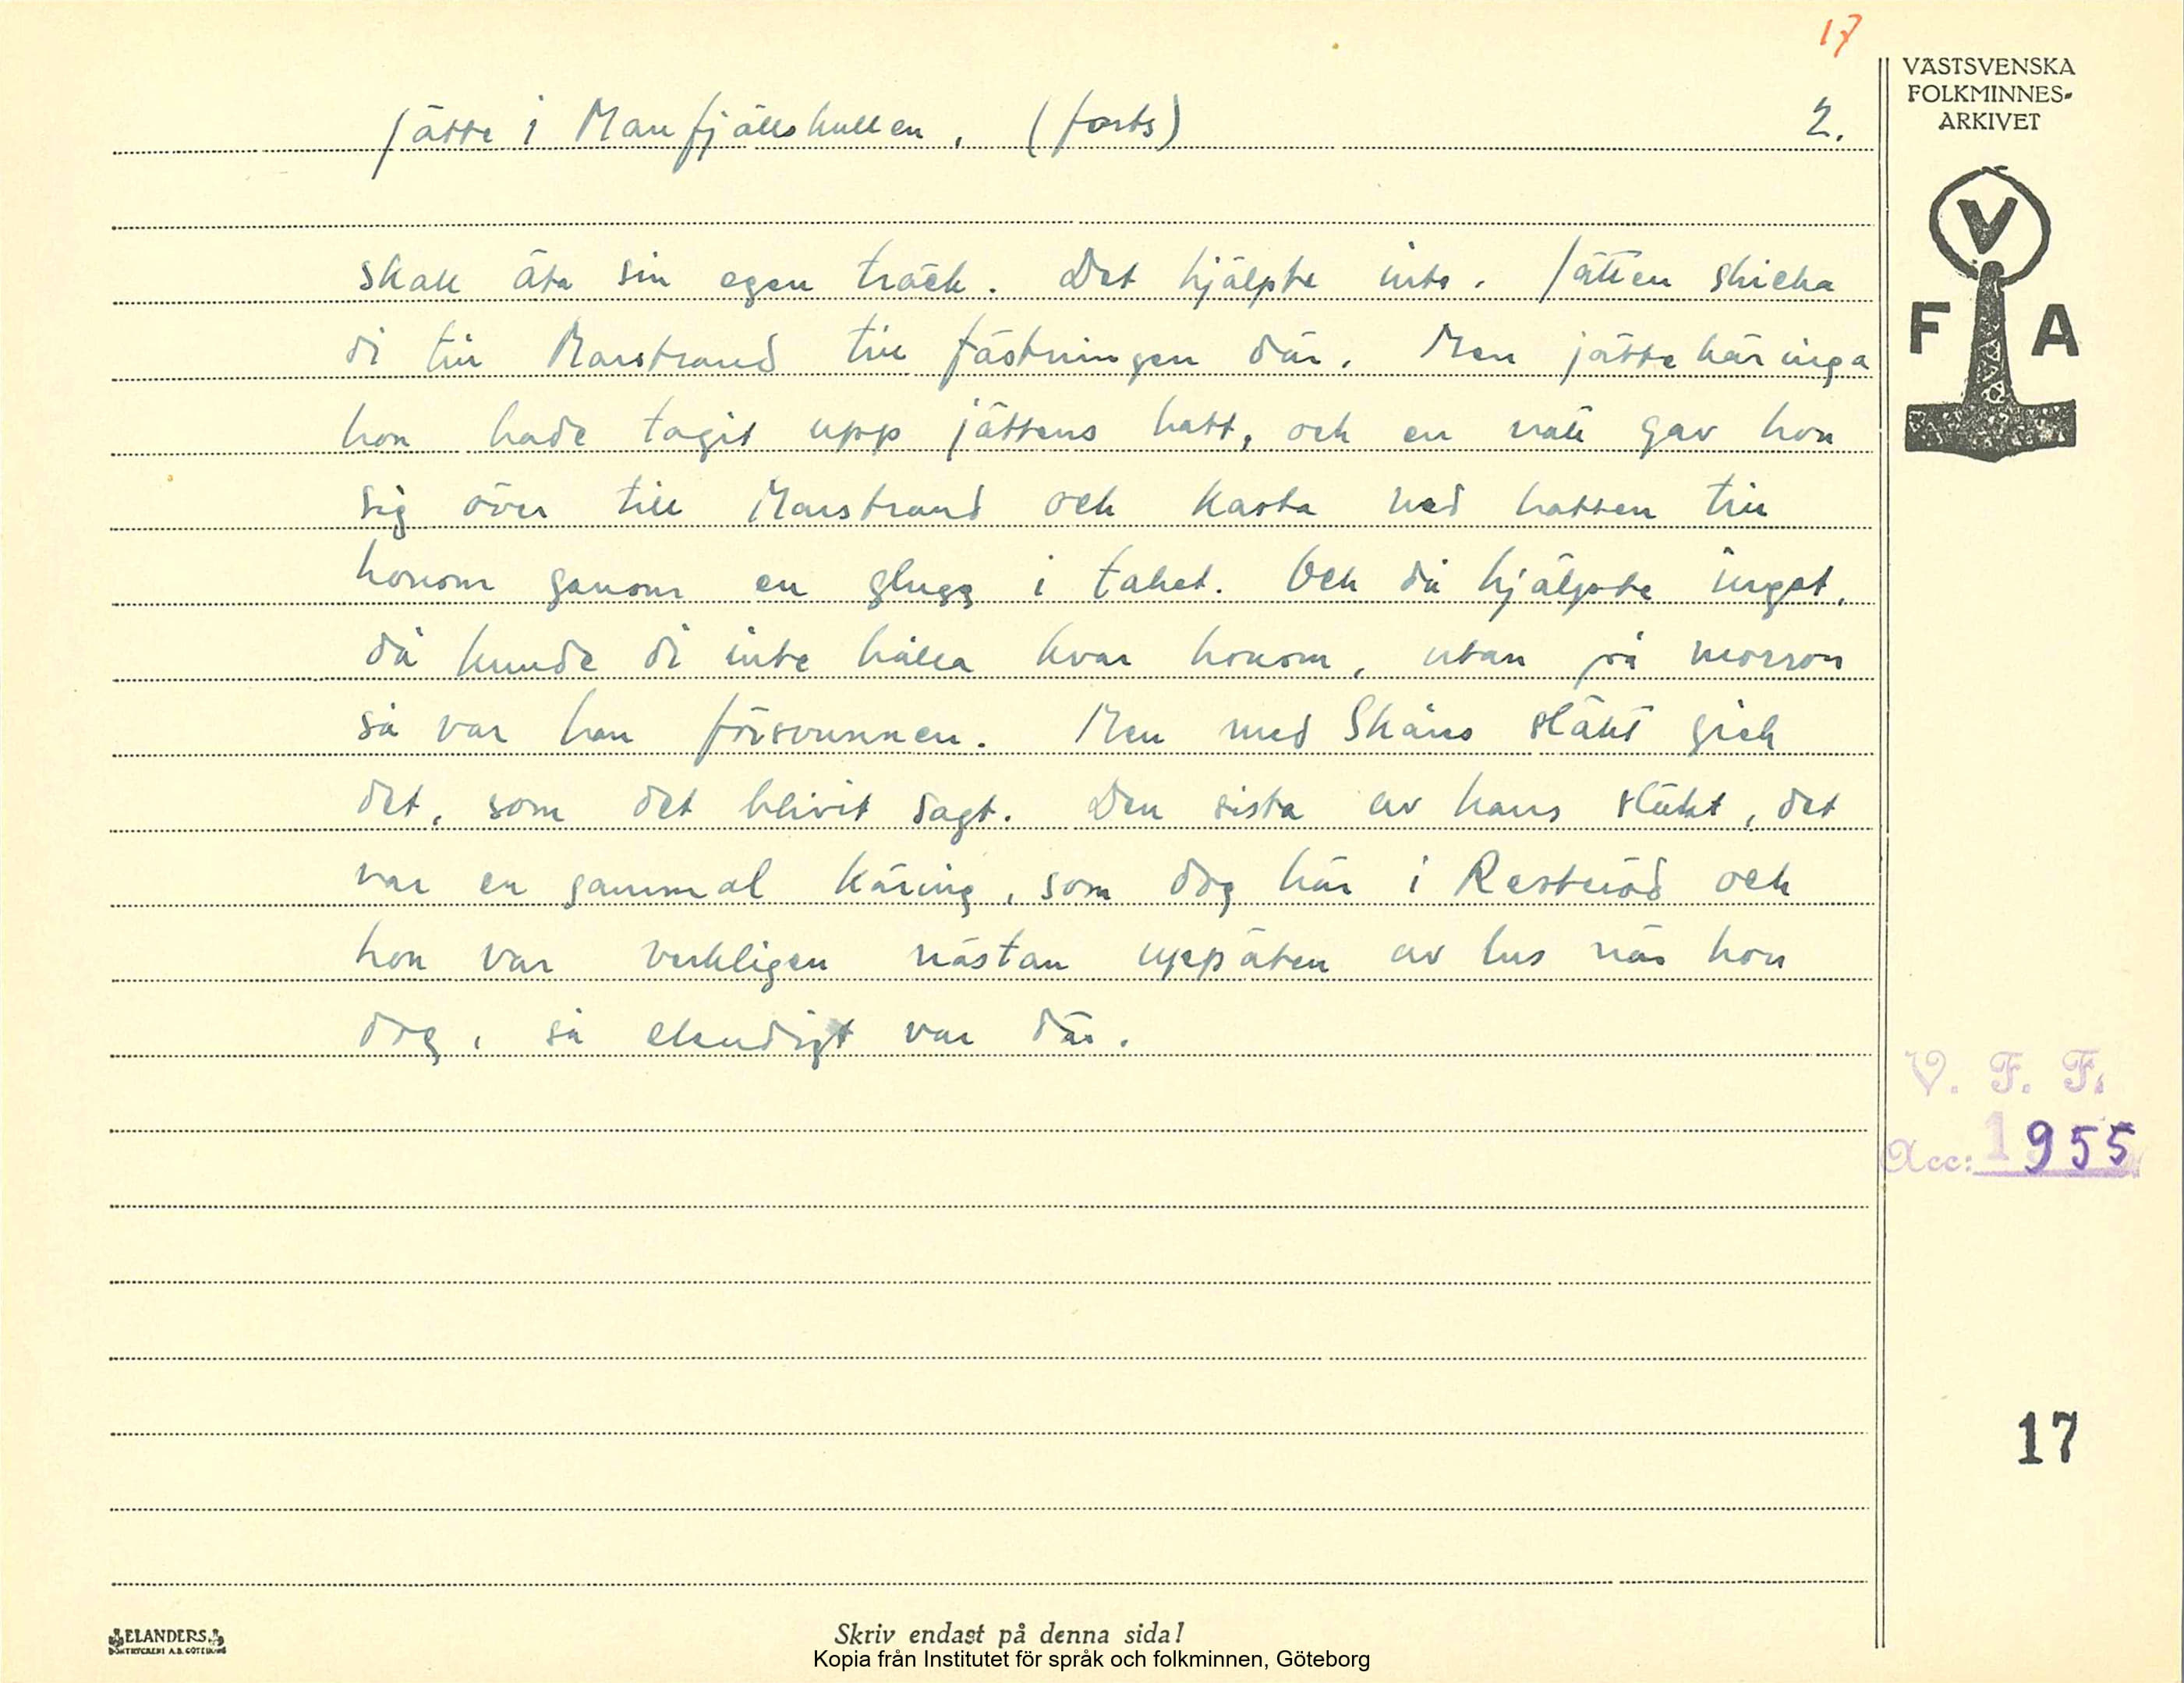 17
VÄSTSVENSKA
FOLKMINNES-
ARKIVET
Jätte i Manfjällskullen, (forts) 2.
V
F A
skall äta sin egen träck. Det hjälpte inte. Jätten skicka
di till Marstrand till fästningen där. Men jättekäringa
hon hade tagit upp jättens hatt, och en natt gav hon
sig över till Marstrand och kasta ned hatten till
honom genom en glugg i taket. Och då hjälpte inget,
då kunde di inte hålla kvar honom, utan på morron
så var han försvunnen. Men med Skåns släkt gick
det, som det blivit sagt. Den sista av hans släkt, det
var en gammal käring, som dog här i Resteröd och
hon var verkligen nästan uppäten av lus när hon
dog, så elendigt var där.
V. F. F.
Acc: 1955
17
ELANDERS
BOKTRYCKERI A.B. GÖTEBORG
Skriv endast på denna sida!
Kopia från Institutet för språk och folkminnen, Göteborg